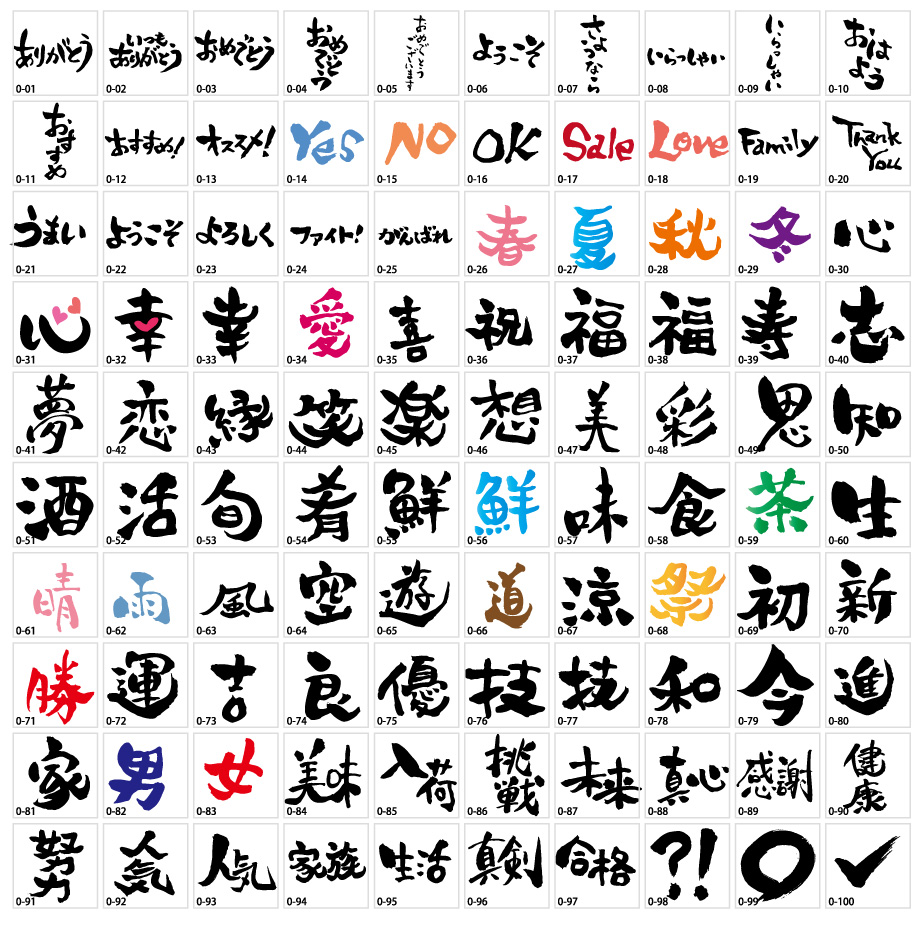 ありがとう
0-01
いつも
ありがとう
0-02
おめでとう
0-03
おめでとう
0-04
おめでとう
ございます
0-05
ようこそ
0-06
さようなら
0-07
いらっしゃい
0-08
いらっしゃい
0-09
おはよう
0-10
おすすめ
0-11
おすすめ!
0-12
オススメ!
0-13
Yes
0-14
NO
0-15
OK
0-16
Sale
0-17
Love
0-18
Family
0-19
Thank
You
0-20
うまい
0-21
ようこそ
0-22
よろしく
0-23
ファイト!
0-24
がんばれ
0-25
春
0-26
夏
0-27
秋
0-28
冬
0-29
心
0-30
心
0-31
幸
0-32
幸
0-33
愛
0-34
喜
0-35
祝
0-36
福
0-37
福
0-38
寿
0-39
志
0-40
夢
0-41
恋
0-42
縁
0-43
笑
0-44
楽
0-45
想
0-46
美
0-47
彩
0-48
思
0-49
知
0-50
酒
0-51
活
0-52
旬
0-53
肴
0-54
鮮
0-55
鮮
0-56
味
0-57
食
0-58
茶
0-59
生
0-60
晴
0-61
雨
0-62
風
0-63
空
0-64
遊
0-65
道
0-66
涼
0-67
祭
0-68
初
0-69
新
0-70
勝
0-71
運
0-72
吉
0-73
良
0-74
優
0-75
技
0-76
技
0-77
和
0-78
今
0-79
進
0-80
家
0-81
男
0-82
女
0-83
美味
0-84
入荷
0-85
挑戦
0-86
未来
0-87
真心
0-88
感謝
0-89
健康
0-90
努力
0-91
人気
0-92
人気
0-93
家族
0-94
生活
0-95
真剣
0-96
合格
0-97
?!
0-98
0-99
0-100